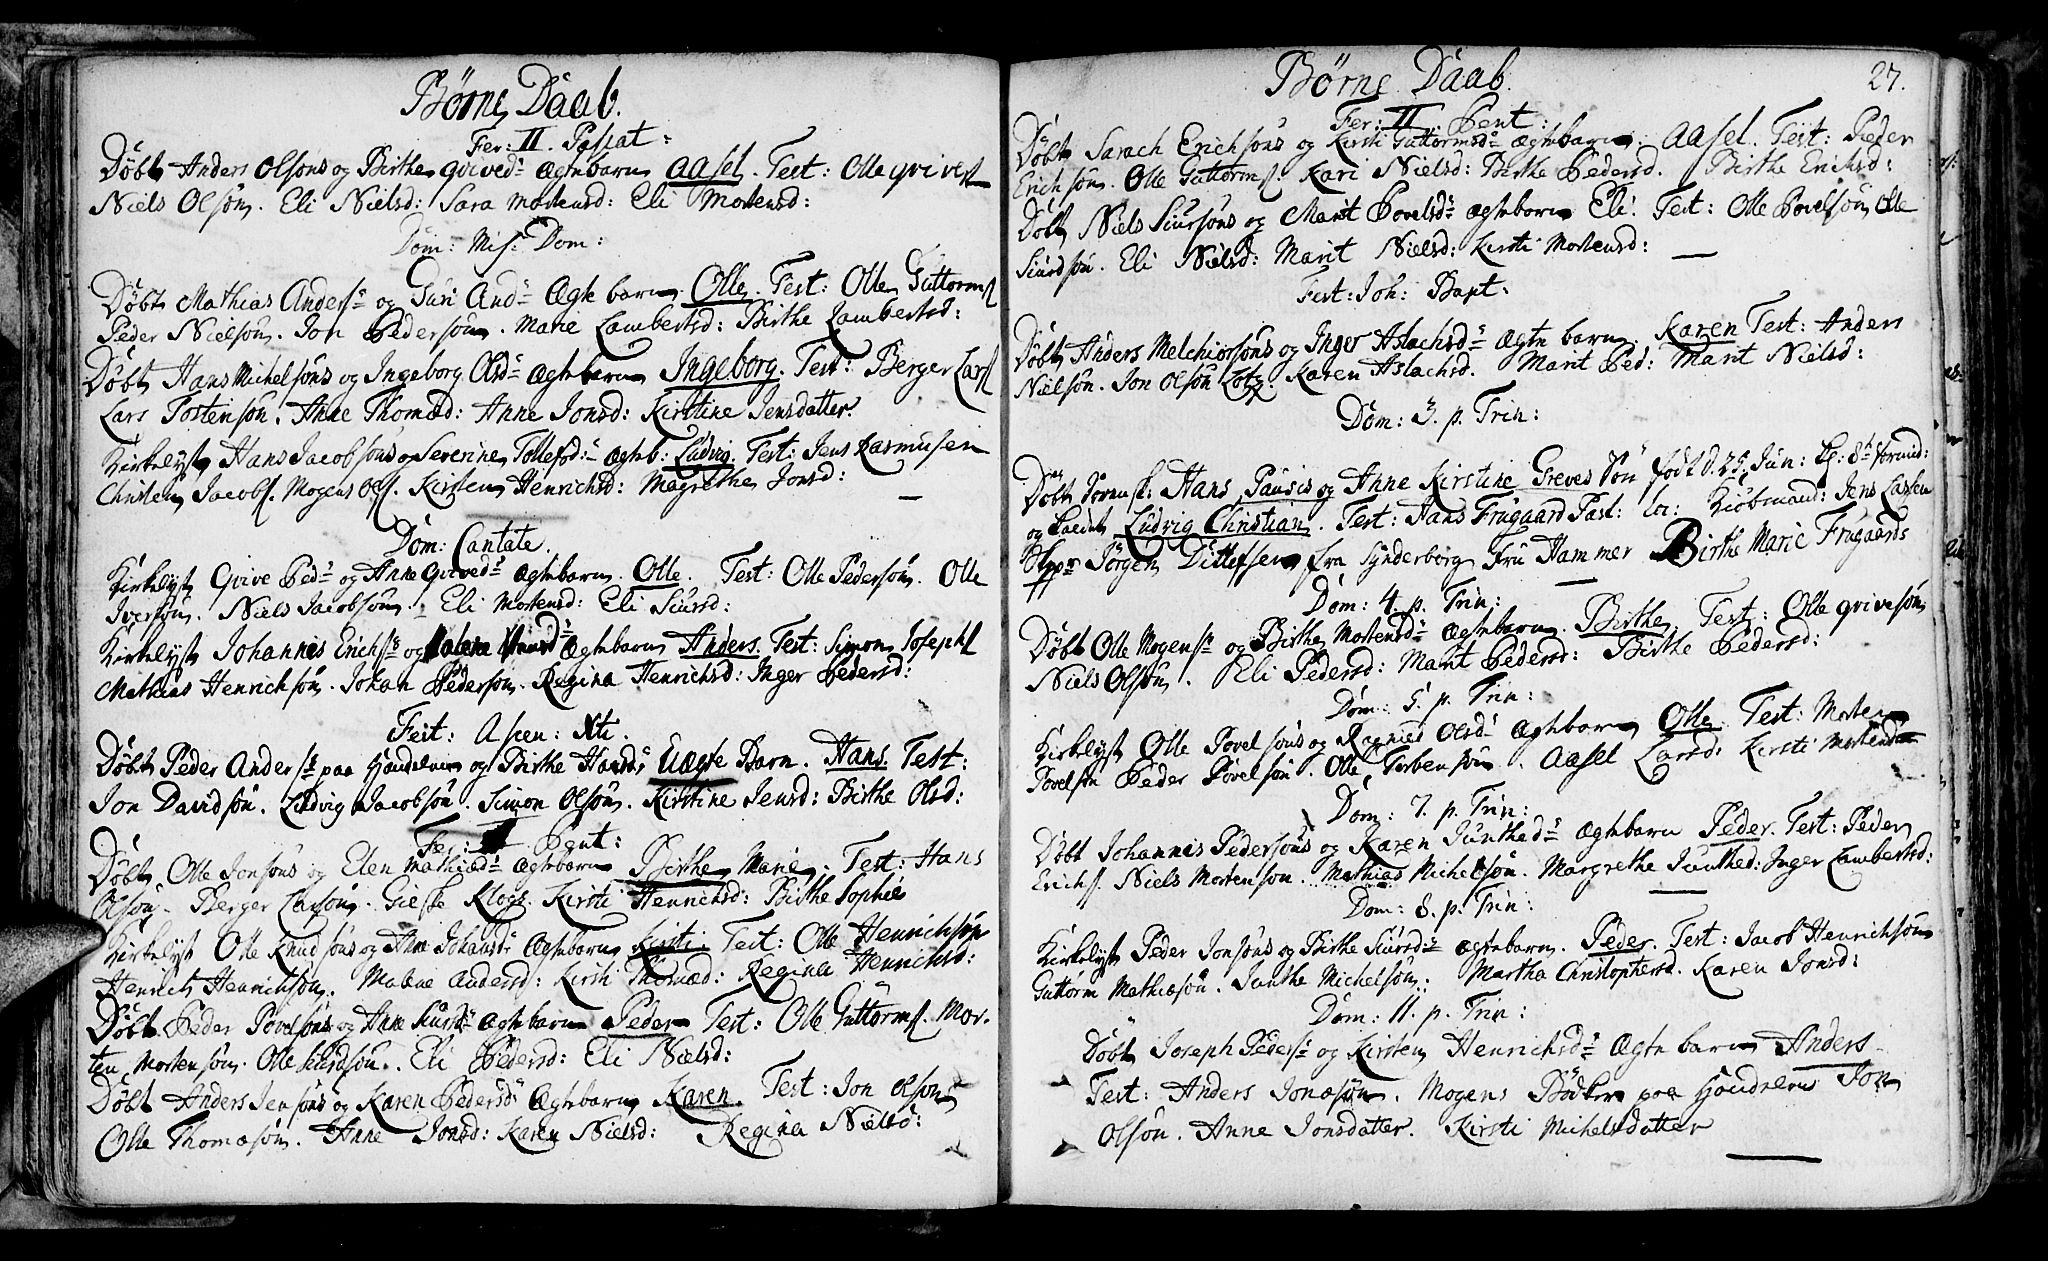 Børne Daab.
Fer: II. Paschat:
Døbt Anders Olsøns og Birthe qvived: ægtebarn Aasel. Test: Olle qvives
Niels Olsøn. Eli Nielsd: Sara Mortensd: Eli Mortensd:
Dom: Mis: Dom:
Døbt Mathias Anders: og Guri And: Ægte barn Olle. Test: Olle Guttorms
Peder Nielsøn. Jon Pedersøn. Marie Lambertsd: Birthe Lambertsd:
Døbt Hans Michelsøns og Ingeborg Olsd: ægtebarn Ingeborg. Test: Berger Lars
Lars Tostensøn. Anne Thomæd: Anne Jonsd: Kirstine Jensdatter.
Kirkelyst Hans Jacobsøns og Severine Tollefsd: ægteb: Ludvig. Test: Jens Rasmusen
Christen Jacobs. Mogens Ols. Kirsten Henrichsd: Magrethe Jonsd:
Dom: Cantate.
Kirkelyst Qvive Ped: og Anne qvived: ægtebarn. Olle. Test: Olle Pedersøn. Olle
Iversøn. Niels Jacobsøn. Eli Mortensd: Eli Siursd:
Kirkelyst Johannis Erichs: og ægtebarn Anders. Test: Simon Josephs
Mathias Henrichsøn. Johan Pedersøn. Regina Henrichsd: Inger Pedersd:
Fest: Ascen: Xti.
Døbt Peder Anders: paa Houdelven og Birthe Hansd: Uægte Barn. Hans. Test:
Jon Davidsøn. Ludvig Jacobsøn. Simon Olsøn. Kirstine Jensd: Birthe Olsd:
Fer: Pent:
Døbt Olle Jonsøns og Elen Mathiæd: ægtebarn Birthe Marie. Test: Hans
Olsøn. Berger Larsøn. Gieske Klogs. Kirsti Henrichsd: Birthe Sophie
Kirkelyst Olle Knudsøns og Anne Johansd: Ægtebarn Kirsti. Test: Olle Henrichsøn
Henrich Henrichsøn. Malene Andersd: Kirsti Thomæd: Regina Henrichsd:
Døbt Peder Povelsøns og Anne Siursd: ægtebarn Peder Test: Olle Guttorms. Mor-
ten Mortensøn. Olle Siurdsøn. Eli Pedersd: Eli Nielsd:
Døbt Anders Jensøns og Karen Pedersd: Ægtebarn Karen. Test: Jon Olsøn
Olle Thomæsøn. Anne Jonsd: Karen Nielsd: Regina Nielsd:
Børne Daab.
27.
Fer: II. Pent:
Døbt Sarach Erichsøns og Kirsti Guttormsd: ægtebarn. Aasel. Test: Peder
Erichsøn. Olle Guttorms. Kari Nielsd: Birthe Pedersd. Birthe Erichsd:
Døbt Niels Siursøns og Marit Povelsd: ægtebarn Eli. Test: Olle Povelsøn Olle
Siurdsøn. Eli Nielsd: Marit Nielsd: Kirsti Mortensd:
Fest: Joh: Bapt:
Døbt Anders Melchiorsøns og Inger Aslachsd: Ægte barn. Karen Test: Anders
Nielsøn. Jon Olsøn Lotz. Karen Aslachsd. Marit Ped: Marit Nielsd:
Dom: 3. p. Trin:
Døbt Hans Pausis og Anne Kirstine Greves Søn født d. 25. Jun:
og Ludvig Christian. Test: Hans Frugaard Past: loc: Kiøbmand: Jens Lassen
Jørgen Ditlefsen fra Synderborg Fru Hammer Birthe Marie Frugaards
Dom: 4. p. Trin:
Døbt Olle Mogens: og Birthe Mortensd: ægtebarn. Birthe. Test: Olle qvivesøn
Niels Olsøn. Eli Pedersd: Marit Pedersd: Birthe Pedersd:
Dom: 5. p. Trin:
Kirkelyst Olle Povelsøns og Ragnild Olsd: ægtebarn Olle. Test: Morten
Povelsøn Peder Povelsøn. Olle Torbensøn. Aasel Larsd: Kirsti Mortensd:
Dom: 7. p. Trin:
Døbt Johannis Pedersøns og Karen Junthed: ægtebarn Peder. Test: Peder
Erichs. Niels Mortensøn. Mathias Michelsøn. Margrethe Junthed: Inger Lambertsd:
Dom: 8. p. Trin:
Kirkelyst Peder Jonsøns og Birthe Siursd: ægtebarn. Peder. Test: Jacob Henrichsøn
Guttorm Mathiæsøn. Junthe Michelsøn. Martha Christophersd. Karen Jonsd:
Dom: 11. p. Trin:
Døbt Joseph Peders: og Kirsten Henrichsd: Ægte barn Anders.
Test: Anders Jonæsøn. Mogens Bødker paa Houdelven Jon
Olsøn. Anne Jonsdatter. Kirsti Michelsdatter